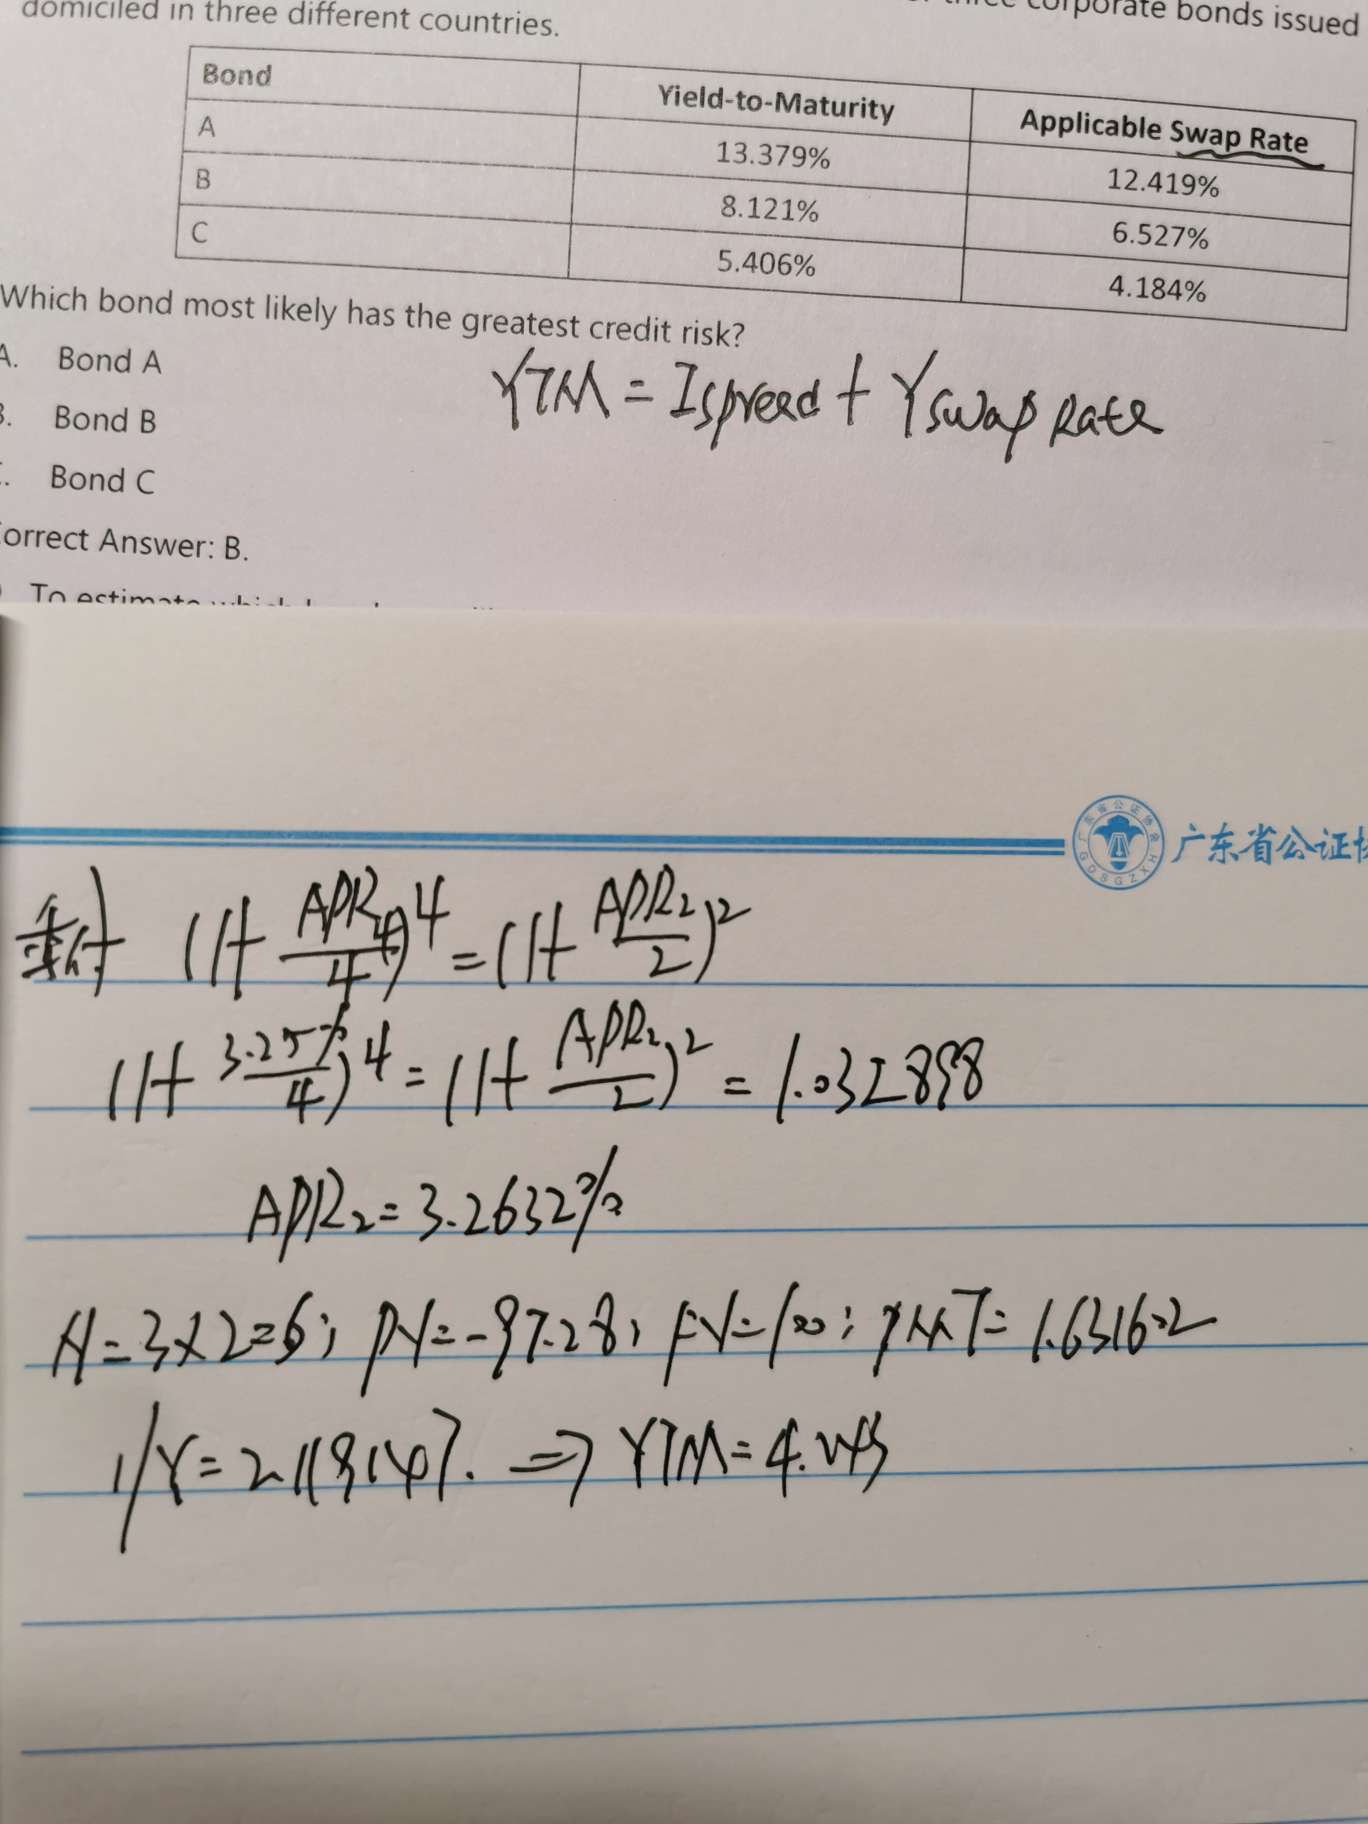 domiciled in three different countries.
three corporate bonds issued
Bond Yield-to-Maturity Applicable Swap Rate
A 13.379% 12.419%
B 8.121% 6.527%
C 5.406% 4.184%
Which bond most likely has the greatest credit risk?
A. Bond A
YTM = Ispread + Yswap Rate
B. Bond B
. Bond C
orrect Answer: B.
To estimate which
广东省公证协
(1+ APR4/4)^4 = (1+ APR2/2)^2
(1+ 3.25%/4)^4 = (1+ APR2/2)^2 = 1.032898
APR2 = 3.2632%
N=3×2=6; PV=-97.28; FV=100; PMT=1.6316
I/Y= ⇒ YTM=